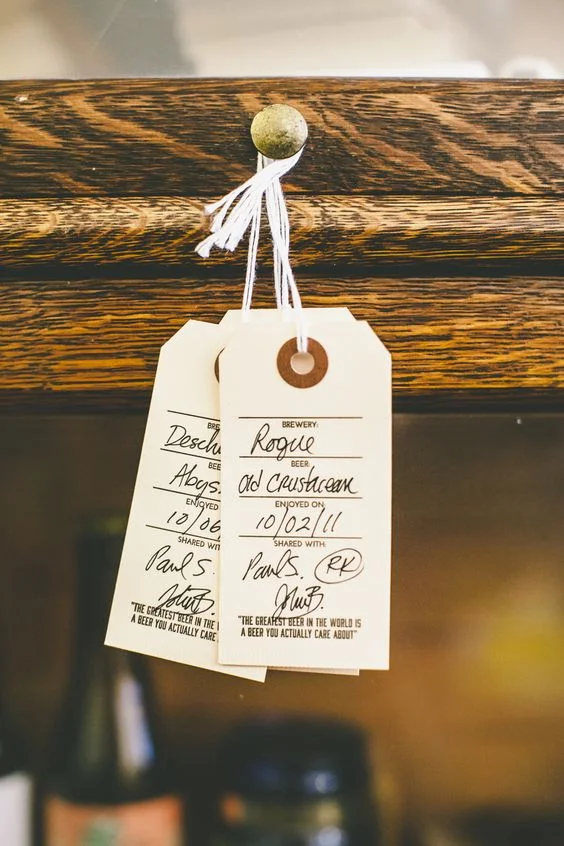 BREWERY:
Rogue
BEER:
Old Crustacean
ENJOYED ON:
10/02/11
SHARED WITH:
Paul S. RK
John B.
"THE GREATEST BEER IN THE WORLD IS
A BEER YOU ACTUALLY CARE ABOUT"
BRE
Desch
BEE
Abys
ENJOYED
10/06
SHARED WIT
Paul S.
John B.
"THE GREATEST BEER IN THE
A BEER YOU ACTUALLY CARE